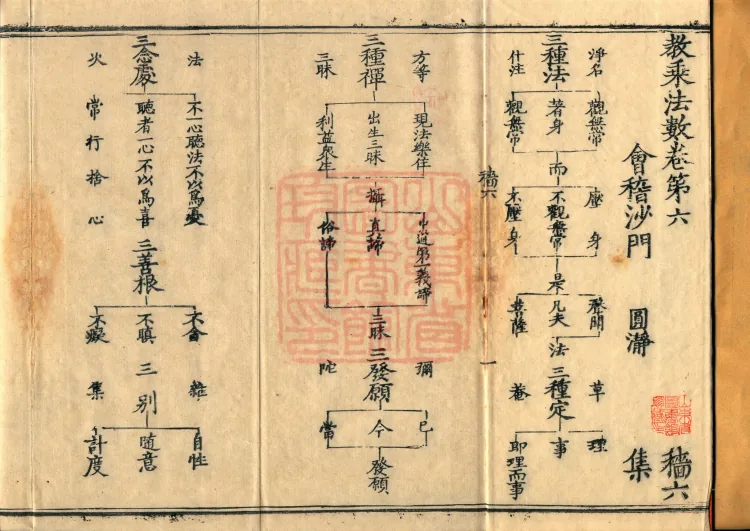 教乘法數卷第六
會稽沙門 圓瀞 集
穡六
淨名 三種法 什注
觀無常 著身 觀無常
而
厭身 不觀無常 不厭身
是
聲聞 凡夫 菩薩
法
草 三種定 菴
理 事 即理而事
穡六 一
方等 三種禪 三昧
現法樂住 出生三昧 利益衆生
攝
中道第一義諦 真諦 俗諦
三昧
彌 三發願 陀
已 今 當
發願
法 三念處 火
不一心聽法不以為憂 聽者一心不以為喜 常行捨心
雜 三善根 集
不貪 不瞋 不癡
三別
自性 隨意 計度